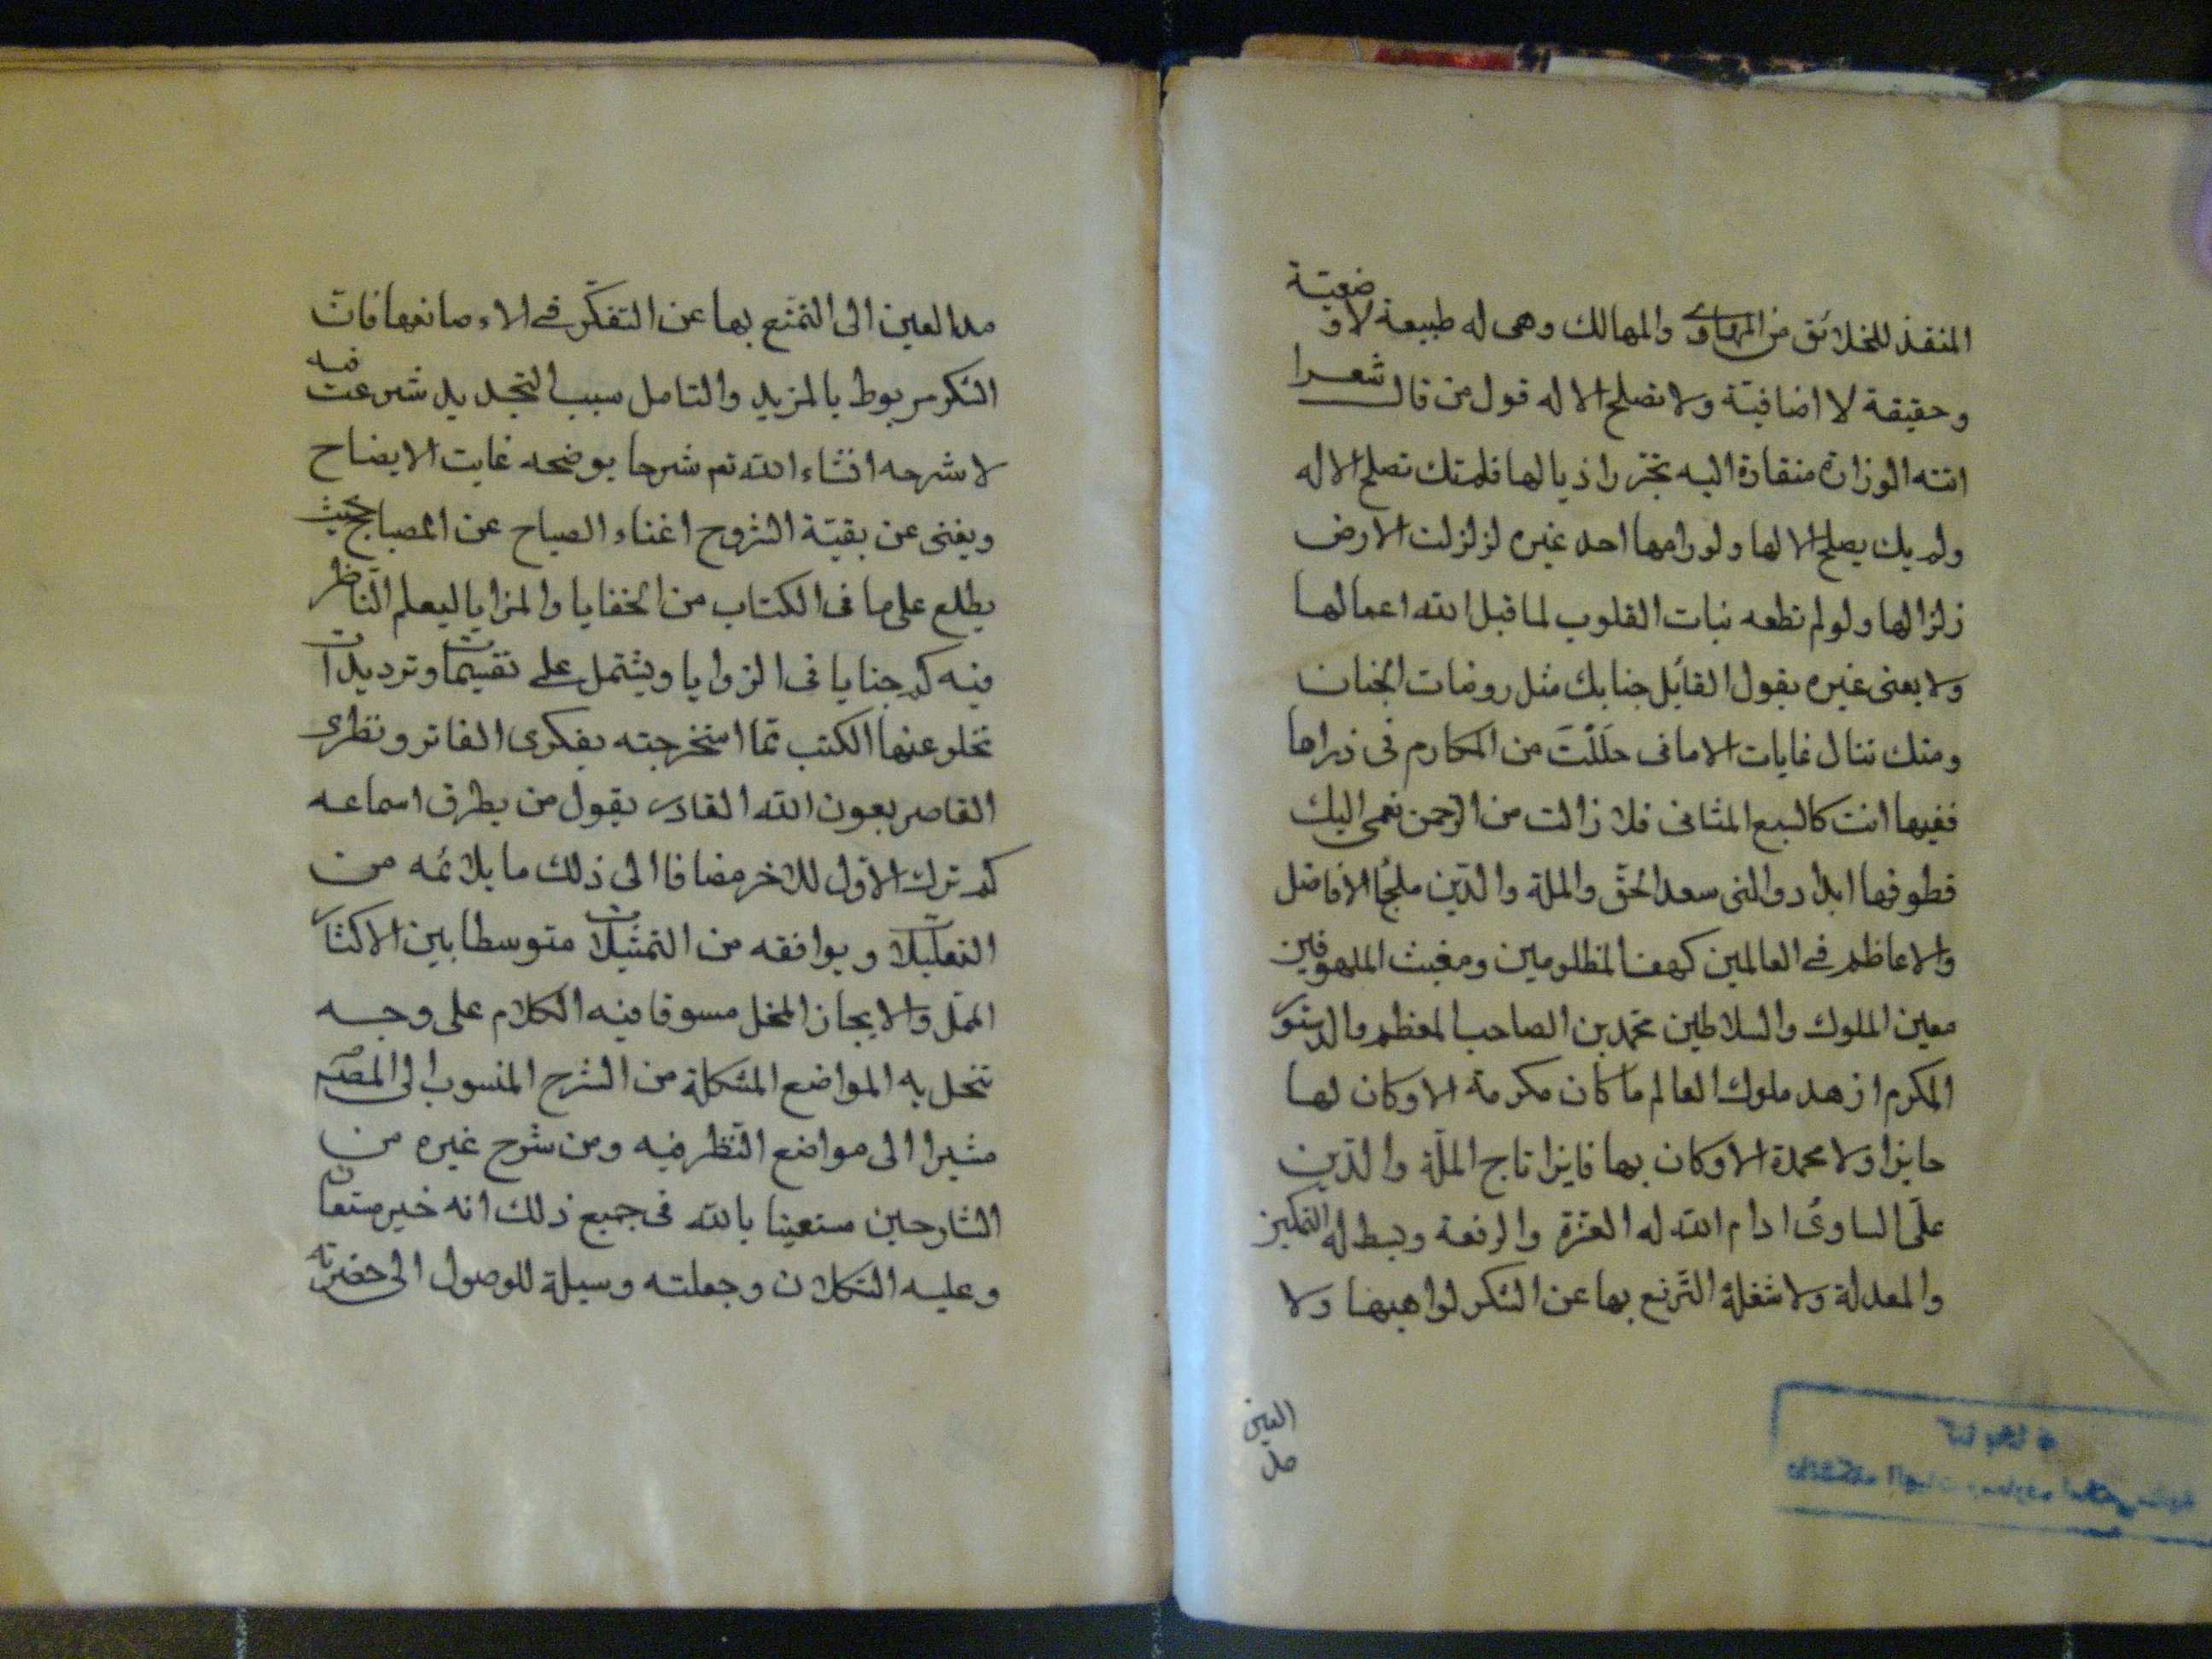 المنقذ للخلائق من المهاوى والمهالك وهى له طبيعة لا وضعيّة
وحقيقة لا اضافيّة ولا تصلح الا له قول من قال شعرا
اتته الوزارة منقادة اليه تجرّر اذيالها فلم تك تصلح الا له
ولم يك يصلح الا لها ولو رامها احد غيره لزلزلت الارض
زلزالها ولو لم تطعه نبات القلوب لما قبل الله اعمالها
ولا يعنى غيره بقول القائل جنابك مثل روضات الجنان
ومنك ننال غايات الامانى حَلَلْتَ من المكارم فى ذراها
ففيها انت كالسبع المثانى فلا زالت من الرحمن نعمى اليك
قطوفها ابدا دوانى سعد الحقّ والملة والدّين ملجأ الافاضل
والاعاظم فى العالمين كهف المظلومين ومغيث الملهوفين
معين الملوك والسلاطين محمّد بن الصاحب المعظم والدستور
المكرم ازهد ملوك العالم ما كان مكرمة الا وكان لها
حايزا ولا محمدة الا وكان بها فايزا تاج الملّة والدّين
علىّ الساوىّ ادام الله له العزّة والرفعة وبسط له التمكين
والمعدلة ولا شغله التّرفع بها عن الشكر لواهبها ولا
العين
مدّ
مد العين الى التمتّع بها عن التفكّر فى الاء صانعها فانّ
الشكر مربوط بالمزيد والتامل سبب التجديد شرعت فيه
لاشرحه انشاء الله تع شرحا يوضحه غايت الايضاح
ويغنى عن بقيّة الشروح اغناء الصباح عن المصباح بحيث
يطلع على ما فى الكتاب من الخفايا والمزايا ليعلم النّاظر
فيه كم خبايا فى الزوايا ويشتمل على تقسيمات وترديدات
تخلو عنها الكتب ممّا استخرجته بفكرى الفاتر ونظرى
القاصر بعون الله القادر يقول من يطرق اسماعه
كم ترك الاوّل للاخر مضافا الى ذلك ما يلائمه من
التعليلات ويوافقه من التمثيلات متوسطا بين الاكثار
المملّ والايجاز المخل مسوقا فيه الكلام على وجه
تنحل به المواضع المشكلة من الشرح المنسوب الى المصنّف
مشيرا الى مواضع النّظر فيه ومن شروح غيره من
الشارحين مستعينا بالله فى جميع ذلك انه خير مستعان
وعليه التكلان وجعلته وسيلة للوصول الى حضرته